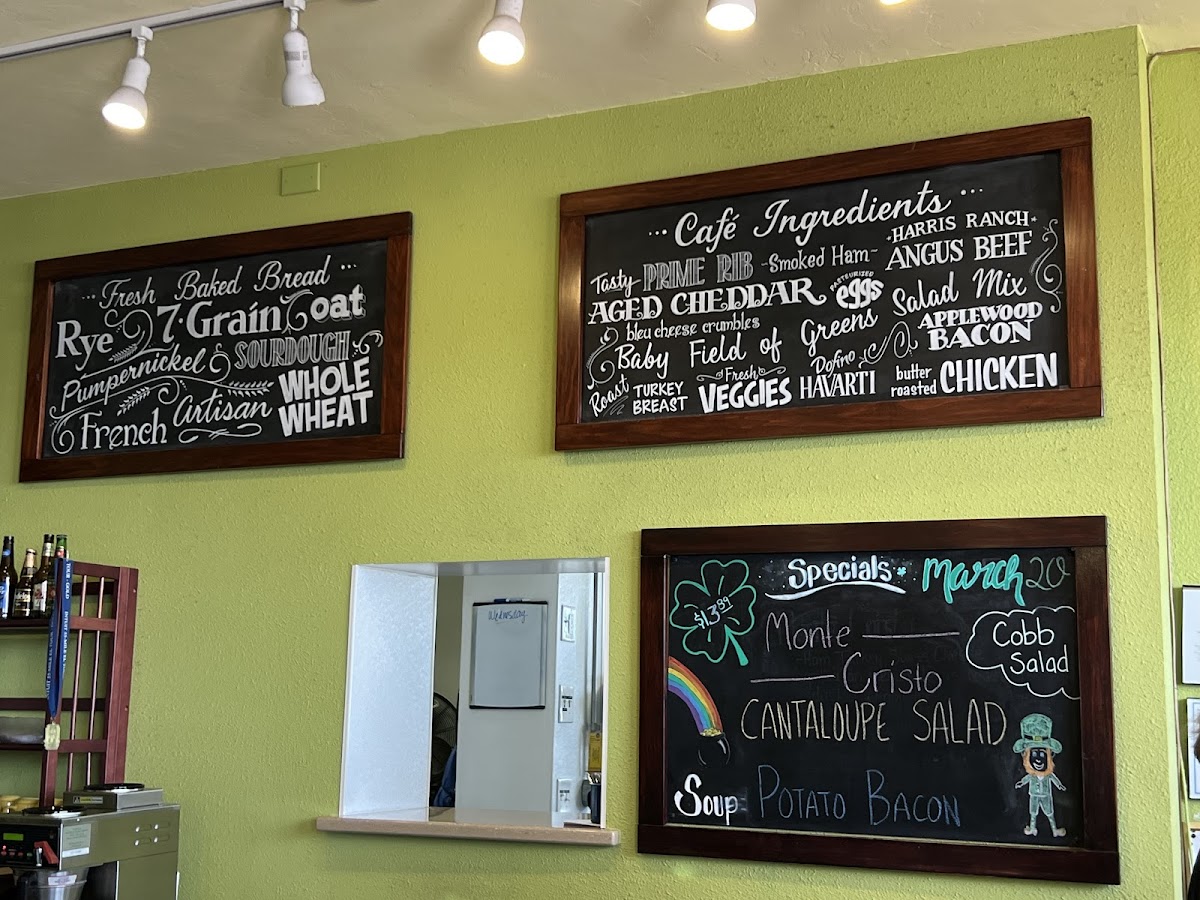 ... Fresh Baked Bread ...
Rye 7·Grain oat
Pumpernickel & SOURDOUGH
French Artisan WHOLE WHEAT
... Café Ingredients ...
Tasty PRIME RIB -Smoked Ham- ·HARRIS RANCH·
ANGUS BEEF
AGED CHEDDAR PASTEURIZED eggs Salad Mix
bleu cheese crumbles
Baby Field of Greens APPLEWOOD BACON
Roast TURKEY BREAST Fresh VEGGIES Dofino HAVARTI butter roasted CHICKEN
Wednesday
Specials March 20
$13.89
Monte
Cristo
Cobb
Salad
CANTALOUPE SALAD
Soup: POTATO BACON